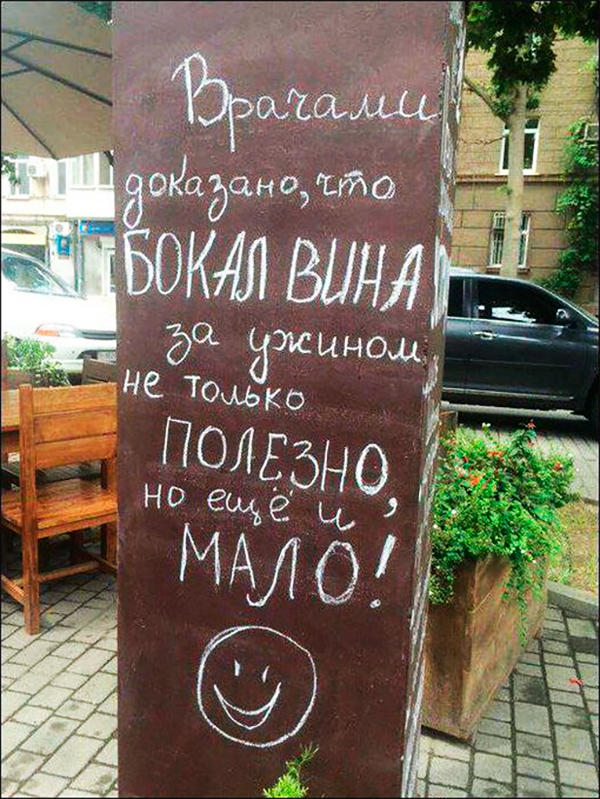 Врачами
доказано, что
БОКАЛ ВИНА
за ужином
не только
ПОЛЕЗНО,
но ещё и
МАЛО!